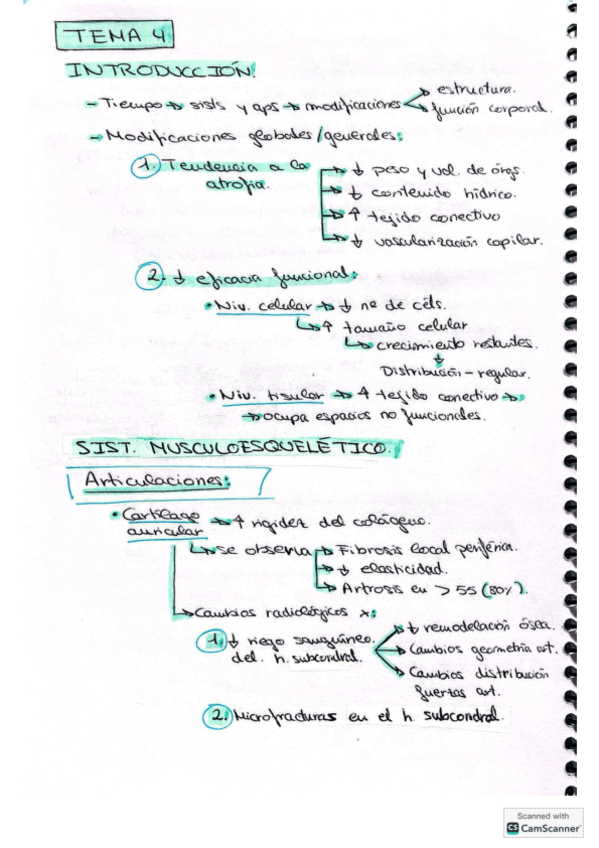 TEMA 4
INTRODUCCIÓN:
- Tiempo → sists y aps → modificaciones → estructura.
→ función corporal.
- Modificaciones globales/generales:
1. Tendencia a la atrofia → ↓ peso y vol. de órgs.
→ ↓ contenido hídrico.
→ ↑ tejido conectivo
→ ↓ vascularización capilar.
2. ↓ eficacia funcional:
• Niv. celular → ↓ nº de céls.
↳ ↑ tamaño celular
↳ crecimiento restantes.
↓
Distribución - regular.
• Niv. tisular → ↑ tejido conectivo →
→ ocupa espacios no funcionales.
SIST. MUSCULOESQUELÉTICO.
Articulaciones:
• Cartílago auricular → ↑ rigidez del colágeno.
↳ se observa → Fibrosis local periférica.
→ ↓ elasticidad.
→ Artrosis en > 55 (80%).
↳ Cambios radiológicos x:
1. ↓ riego sanguíneo del. h. subcondral. → ↓ remodelación ósea.
→ Cambios geometría art.
→ Cambios distribución fuerzas art.
2. Microfracturas en el h. subcondral.
Scanned with
CS CamScanner